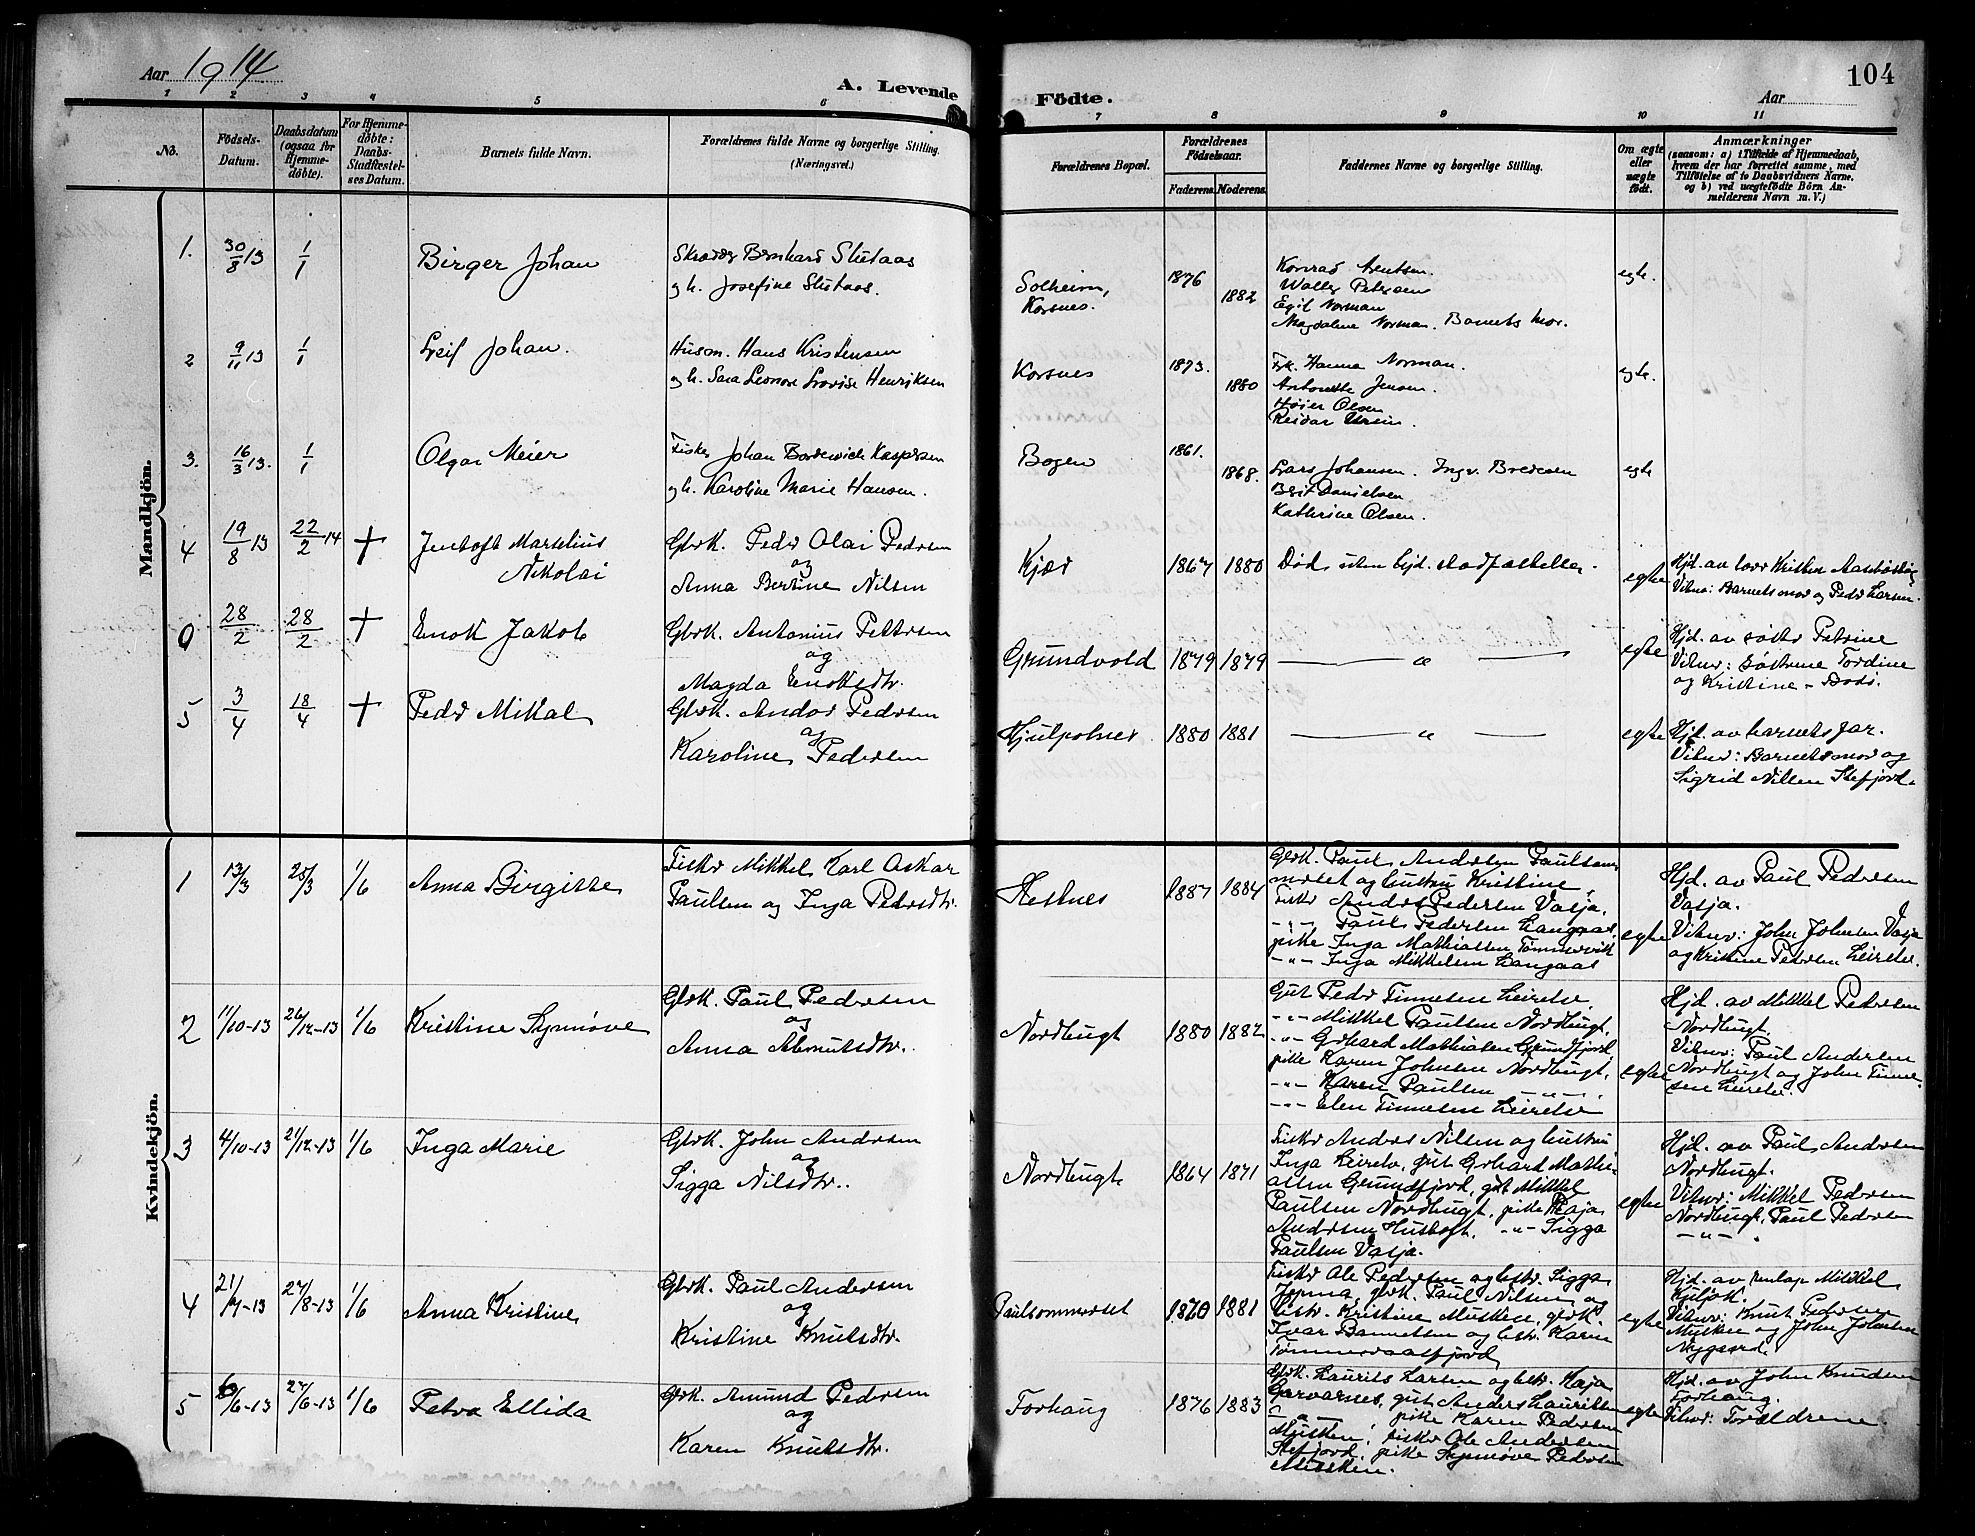 Aar 1914
A. Levende
Födte.
Aar
104
1 2 3 4 5 6 7 8 9 10 11
No.
Födsels-
Datum.
Daabsdatum
(ogsaa for
Hjemme-
döbte).
For Hjemme-
döbte:
Daabs-
Stadfæstel-
ses Datum.
Barnets fulde Navn.
Forældrenes fulde Navne og borgerlige Stilling.
(Næringsvei.)
Forældrenes Bopæl.
Forældrenes
Födselsaar.
Faderens. Moderens.
Faddernes Navne og borgerlige Stilling.
Om ægte
eller
uægte
födt.
Anmærkninger
(saasom: a) i Tilfælde af Hjemmedaab,
hvem der har forrettet samme, med
Tilföielse af to Daabsvidners Navne.
og b) ved uægtefödte Börn An-
melderens Navn m. V.)
Mandkjön.
1. 30/8 13 1/1 Birger Johan
Skrædder Bernhard Slutaas
og h. Josefine Slutaas.
Solheim,
Korsnes.
1876 1882
Konrad Arentsen.
Walter Petersen
Egil Norman
Magdalene Norman. Barnets mor.
egte.
2 9/11 13 1/1 Leif Johan.
Husm. Hans Kristensen
og h. Sara Leonore Lovise Henriksen
Korsnes
1873. 1880
Frk. Hanna Norman.
Antonette Jensen.
Höier Olsen
Reidar Ursin.
egte.
3. 16/3 13. 1/1 Olgar Meier
Fisker Johan Bordewich Kaspersen
og h. Karoline Marie Hansen.
Bogen
1861. 1868.
Lars Johansen. Ingv. Bredesen
Berit Danielsen
Kathrine Olsen.
egte
4 19/8 13 22/2 14 + Jentoft Martelius
Nikolai
Gbrk. Peder Olai Pedersen
og
Anna Bertine Nilsen
Kjær
1867 1880
Död uten bejd. stadfæstelse.
egte
Hjd. av lærer Kristen
Vitner: Barnets mor og Peder Larsen.
0 28/2 28/2 + Enok Jakob
Gbrk. Antonius Pettersen
og
Magda Enoksdtr.
Grundvold
1879 1879
— " —
egte
Hjd. av söster Petrine
Vitner: Söstrene Tordine
og Kristine - Bodö.
5 3/4 18/4 + Peder Mikal
Gbrk. Andor Pedersen
og
Karoline Pedersen
Hjulpolnes
1880 1881
— " —
egte
Hjd. av barnets far.
Vitner: Barnets mor og
Sigrid Nilsen Stefjord.
Kvindekjön.
1 13/3 25/3 1/6 Anna Birgitte
Fisker Mikkel Karl Oskar
Paulsen og Inga Pedersdtr.
Hestnes
1887 1884
Gbrk. Paul Andersen Paulsom-
merset og hustru Kristine,
Fisker Anders Pedersen Vasja.
- " - Paul Pedersen Langaas,
pike Inga Mathiassen Tömmervik
- " - Inga Mikkelsen Langaas
egte
Hjd. av Paul Pedersen
Vasja.
Vitner: John Johnsen Vasja
og Kristine Pedersen Leirelv.
2 11/10-13 26/12-13 1/6 Kristine Synnöve
Gbrk. Paul Pedersen
og
Anna Asmutsdtr.
Nordbugt
1880 1882
Gut Peder Finnesen Leirelv,
- " - Mikkel Paulsen Nordbugt.
- " - Gerhard Mathisen Grundfjord
pike Karen Johnsen Nordbugt,
- " - Karen Paulsen - " -
- " - Elen Finnesen Leirelv
egte
Hjd. av Mikkel Pedersen
Nordbugt.
Vitner: Paul Andersen
Nordbugt og John Finne-
sen Leirelv.
3 4/10-13 21/12-13 1/6 Inga Marie
Gbrk. John Andersen
og
Sigga Nilsdtr.
Nordbugt
1864 1871
Fisker Anders Nilsen og hustru
Inga Leirelv, gut Gerhard Mathi-
assen Grundfjord, gut Mikkel
Paulsen Nordbugt, pike Kaja
Andersen Hustoft. - " - Sigga
Paulsen Vasja.
egte
Hjd. av Paul Andersen
Nordbugt.
Vitner: Mikkel Pedersen
Nordbugt, Paul Pedersen
- " - .
4 21/7-13 27/8-13 1/6 Anna Kristine
Gbrk. Paul Andersen
og
Kristine Knutsdtr.
Paulsommerset
1870 1881
Fisker Ole Pedersen og hstr. Sigga
gbrk. Paul Nilsen og
hstr. Kristine Musken, gbrk.
Ivar Bannetsen og hstr. Karen
Tömmeraasfjord
egte
Hjd. av Mikkel
Kjelök.
Vitner: Knut Pedersen
Musken og John Johnsen
Nygaard.
5 6/6-13 27/6-13 1/6 Petra Ellida
Gbrk. Amund Pedersen
og
Karen Knutsdtr.
Forhaug
1876 1883
Gbrk. Laurits Larsen og hstr. Kaja
Garvarnes, gut Anders Lauritsen
- " - , pike Karen Pedersen
Musken, fisker Ole Andersen
Stefjord, pike Synnöve Pedersen
Musken.
egte
Hjd. av John Knudsen
Forhaug.
Vitner: Forældrene.